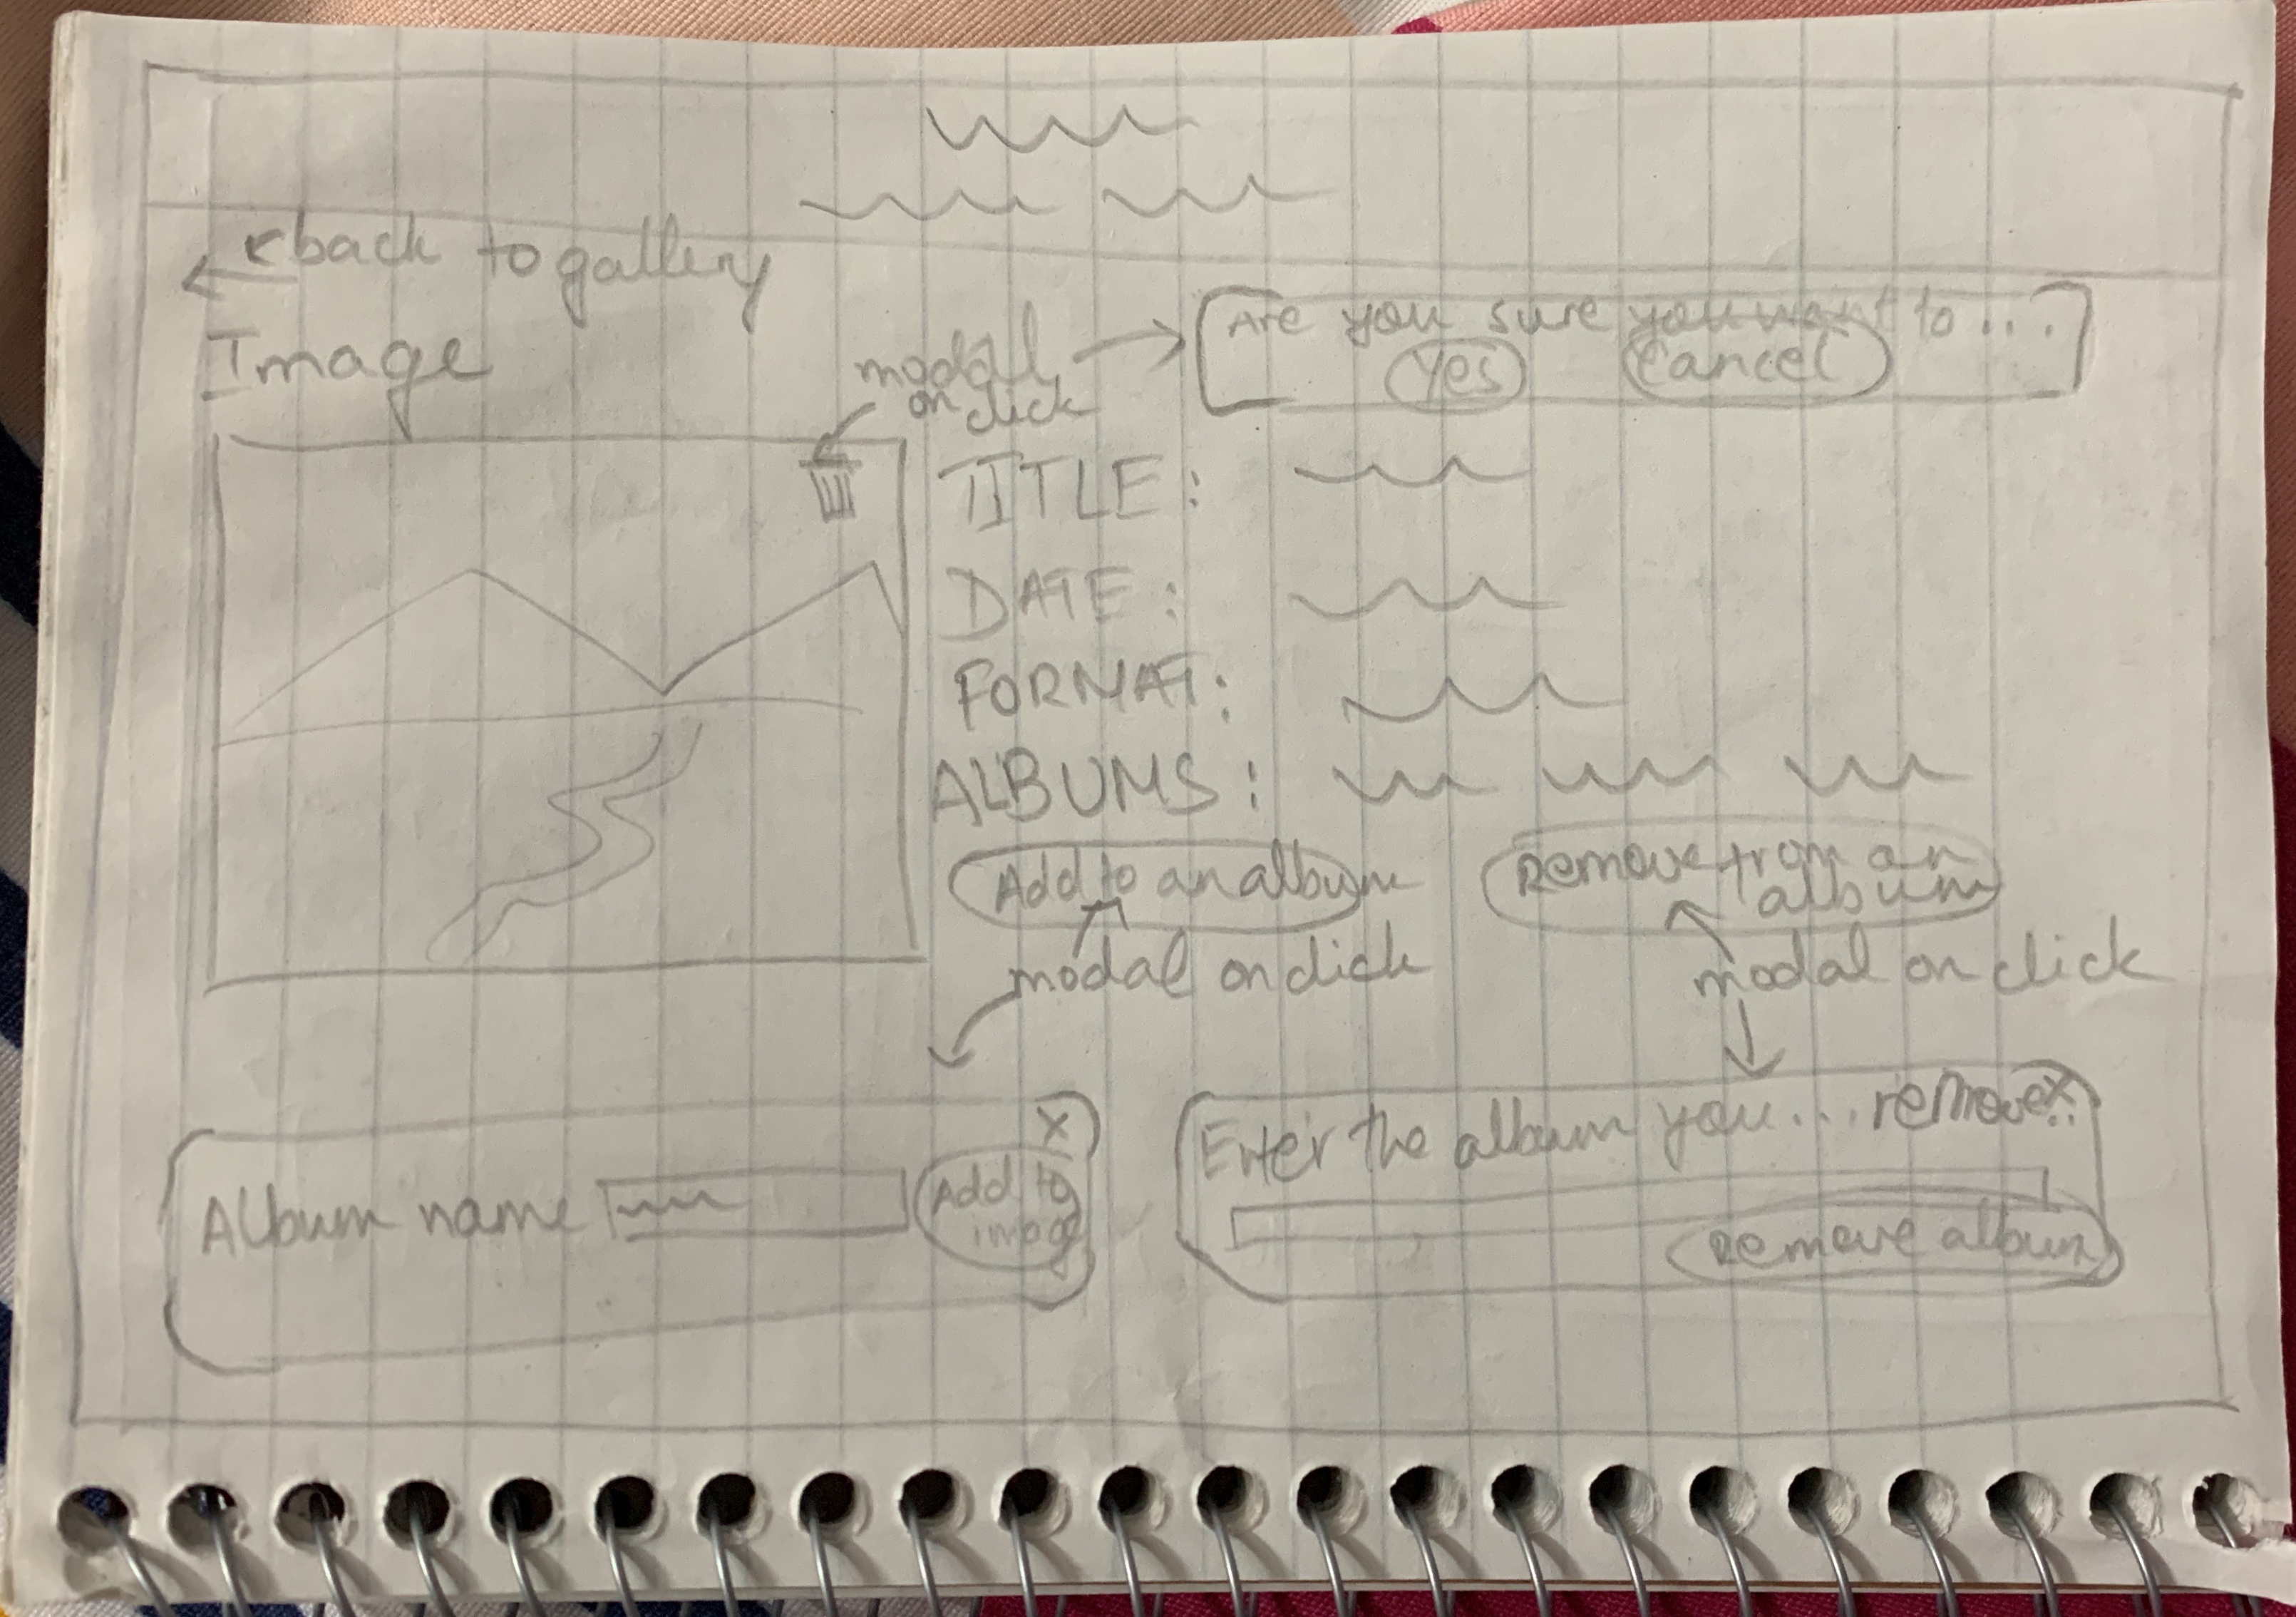 back to gallery
Image
modal
on click
Are you sure you want to ...
Yes
Cancel
TITLE:
DATE:
FORMAT:
ALBUMS:
Add to an album
Remove from an
album
modal on click
modal on click
X
Album name
Add to
image
Enter the album you... remove..
X
Remove album